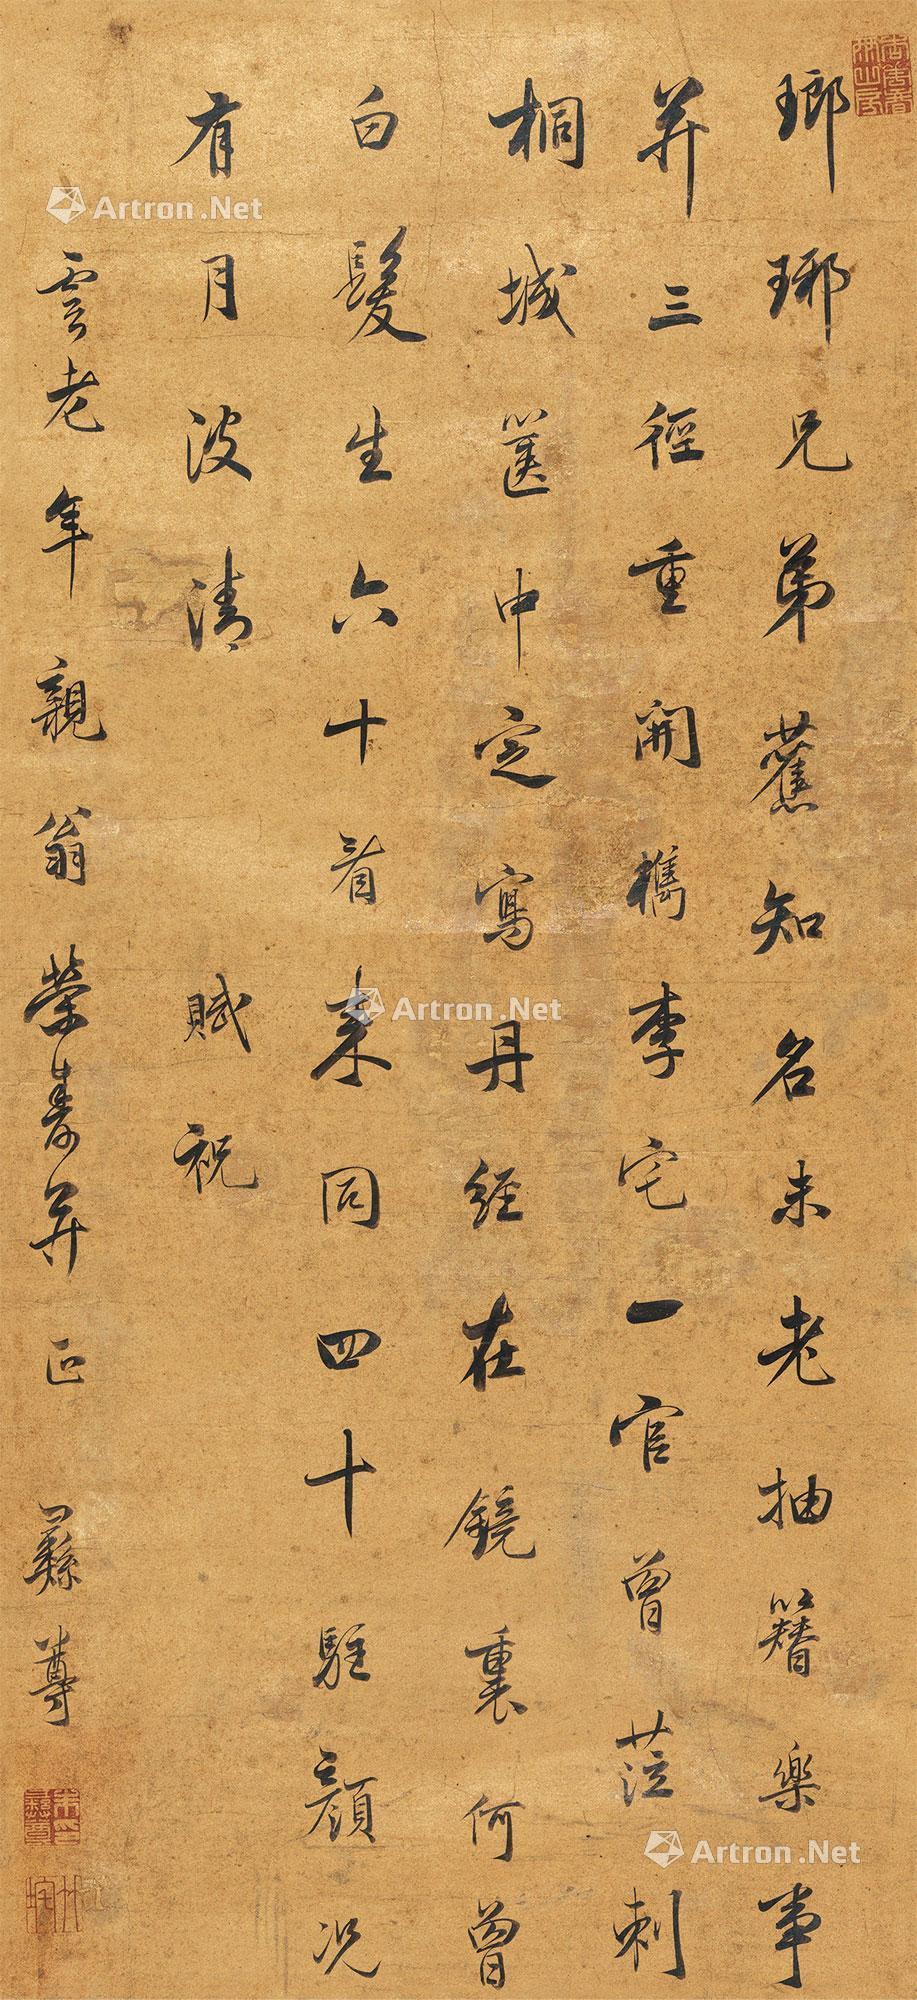 瑯琊兄弟舊知名未老抽簪樂事
并三徑重開檇李宅一官曾蒞刺
桐城篋中定寫丹經在鏡裏何曾
白髮生六十看來同四十駐顏況
有月波清　賦祝
雲老年親翁榮壽并正　彝尊
朱彝尊
竹垞
Artron.Net
Artron.Net
Artron.Net